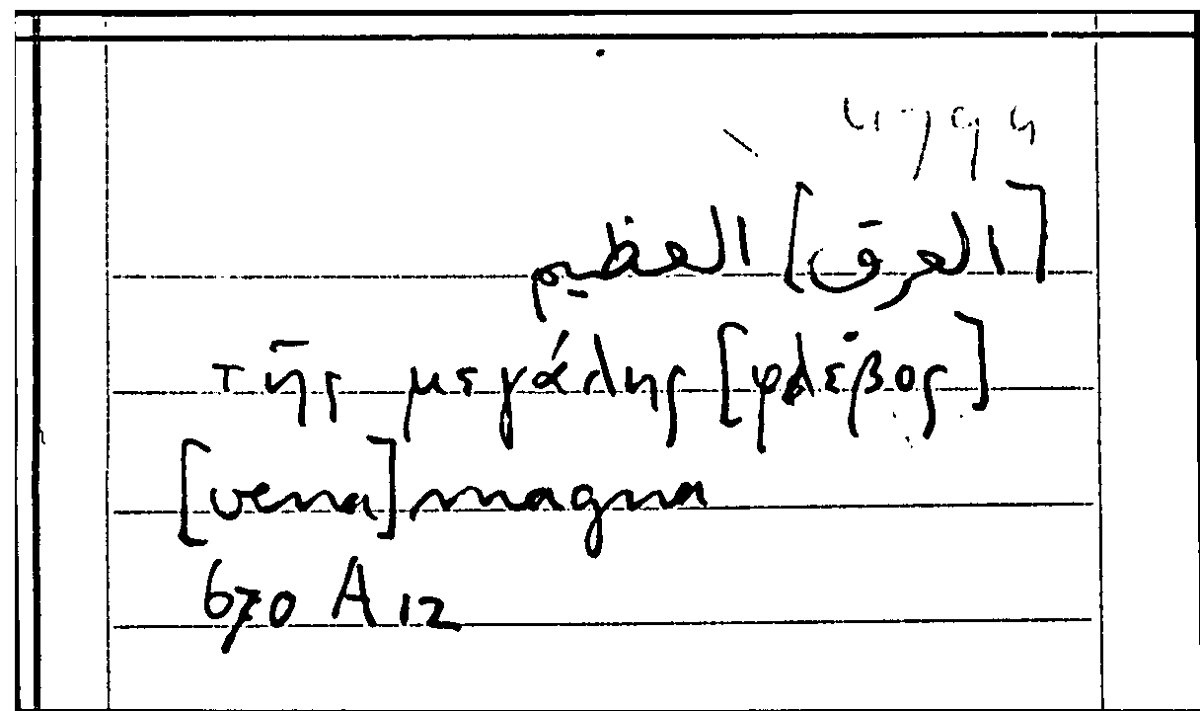 [العرق] العظيم
τῆς μεγάλης [φλεβος]
[vena] magna
670 A 12